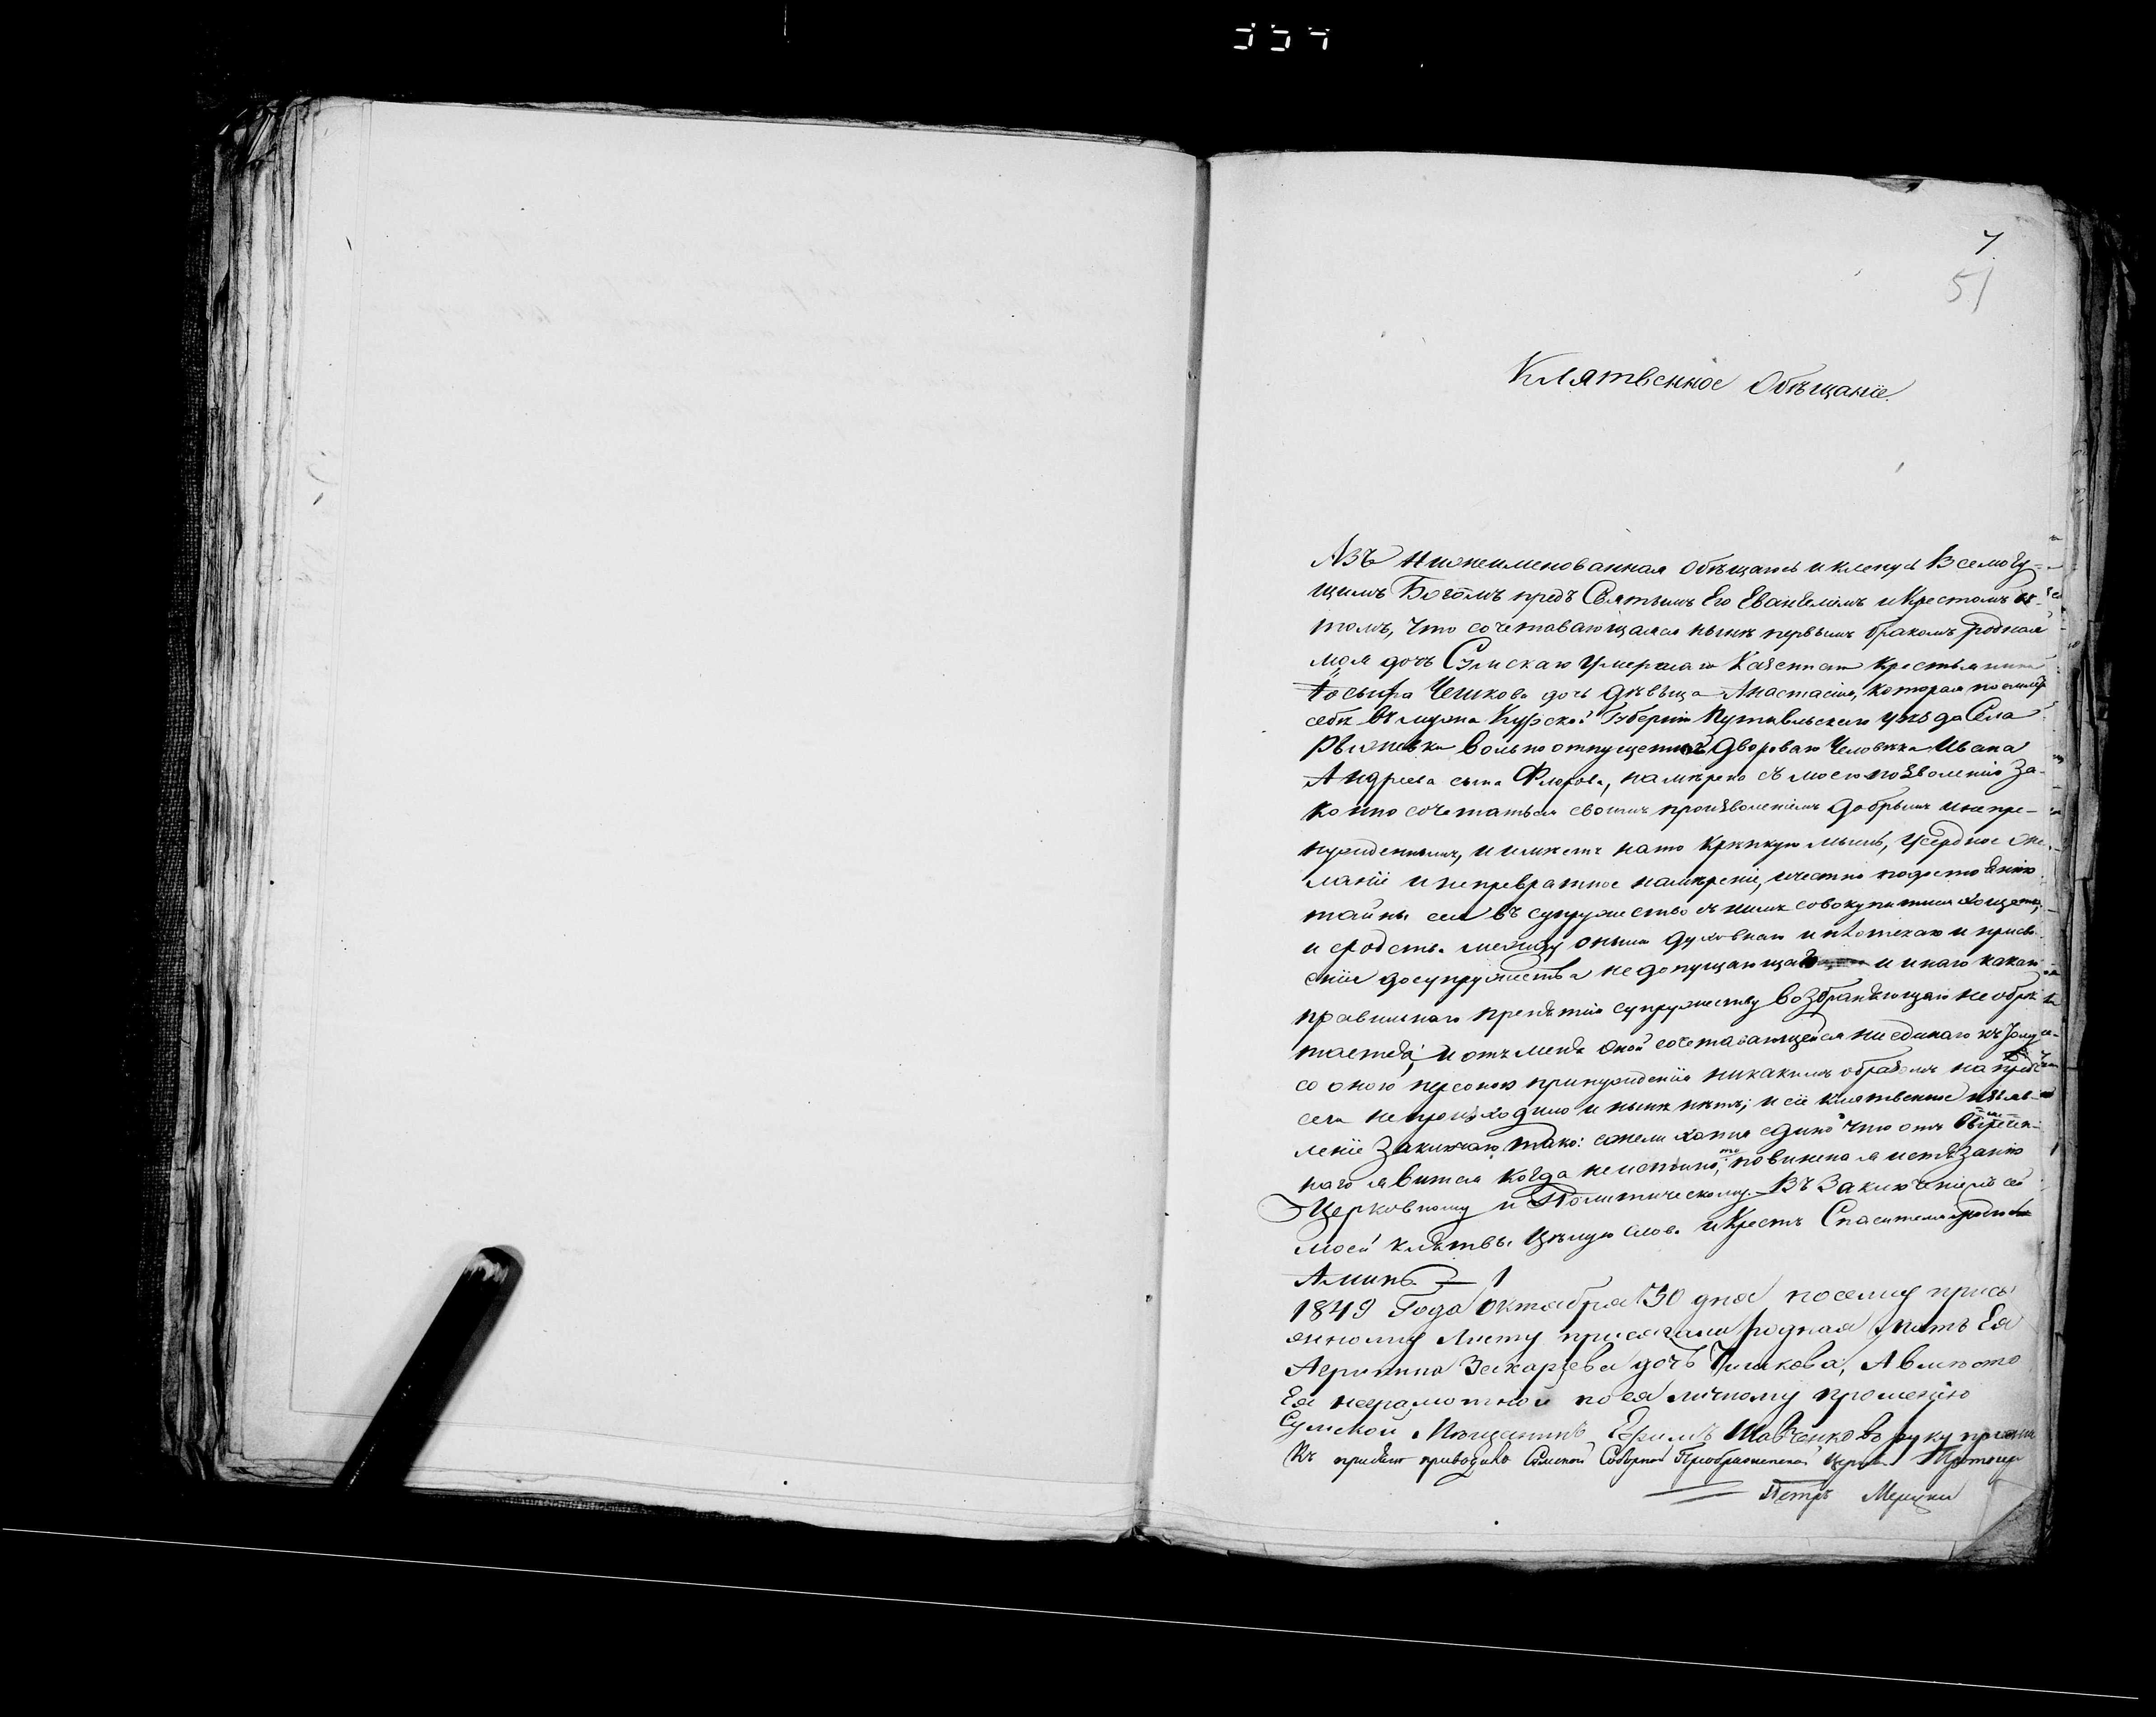 7.
51
Клятвенное Обѣщаніе.
Азъ нижеименованная обѣщаюсь и кленусь Всемогу=
щимъ Богомъ предъ Святымъ Его Евангеліемъ и Крестомъ въ
томъ, что сочетавающаяся нынѣ первымъ бракомъ родная
моя дочь Сумскаго умершаго Казеннаго крестьянина
Чешкова дочь дѣвица Анастасія, которая поемлетъ
себѣ въ мужа Курской Губерніи Путивльскаго уѣзда Села
Рыжевки вольноотпущеннаго двороваго человѣка Ивана
Андреева сына Фролова, намѣрена съ моего позволенія за-
конно сочетаться своимъ произволеніемъ добрымъ и непри-
нужденнымъ, и имѣетъ на то крѣпкую мысль, усердное же-
ланіе и непревратное намѣреніе, и честно по достоянію
тайны сея въ супружество съ нимъ совокупитися хощетъ,
и сродства между оными духовнаго и плотскаго и присво-
енія до супружества не допущающаго и инаго какаго
правильнаго препятія супружеству возбраняющаго не обрѣ
тается; и отъ меня оной сочетавающейся ни единаго къ тому
со оною персоною принужденія никакимъ образомъ напредь
сего не происходило и нынѣ нѣтъ; и сіе клятвенное изъяв-
леніе заключаю тако: ежели хотя едино что отъ вышеписан-
наго явится когда неистинно, то повинна я истязанію
Церковному и Политическому. Въ заключеніе сей
моей клятвы цѣлую слова и Крестъ Спасителя моего
Аминь.
1849 Года октября 30 дня по сему прися
жному листу присягала родная мать Ея
Агрипина Захарьева дочь Чишкова, А вмѣсто
Ея неграмотной по ея личному прошенію
Сумской Мѣщанинъ Ефимъ Шавченковъ руку приложи
Къ присягѣ приводилъ Сумской Соборной Преображенской Церкви Протоіер
Петръ